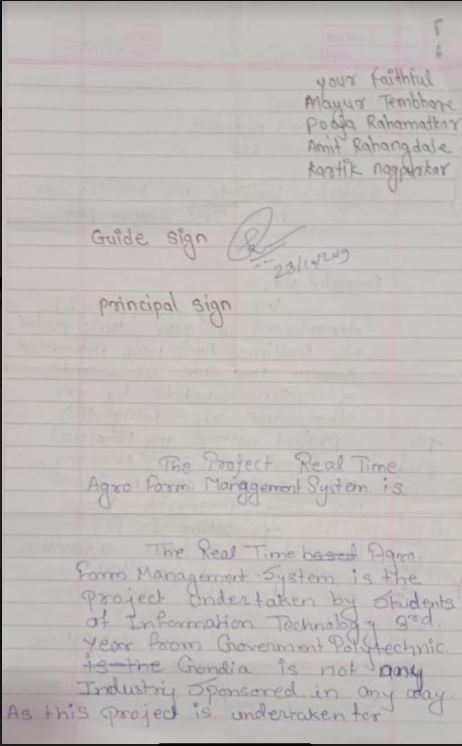 your Faithful
Mayur Tembhare
Pooja Rahamatkar
Amit Rahangdale
Kartik nagpurkar
Guide sign
principal sign
The Project Real Time
Agro Farm Management System is
The Real Time based Agro
Farm Management System is the
project undertaken by students
of Information Technology 3rd
year from Government Polytechnic
is the Gondia is not any
Industry Sponsored in any way
As this project is undertaken for